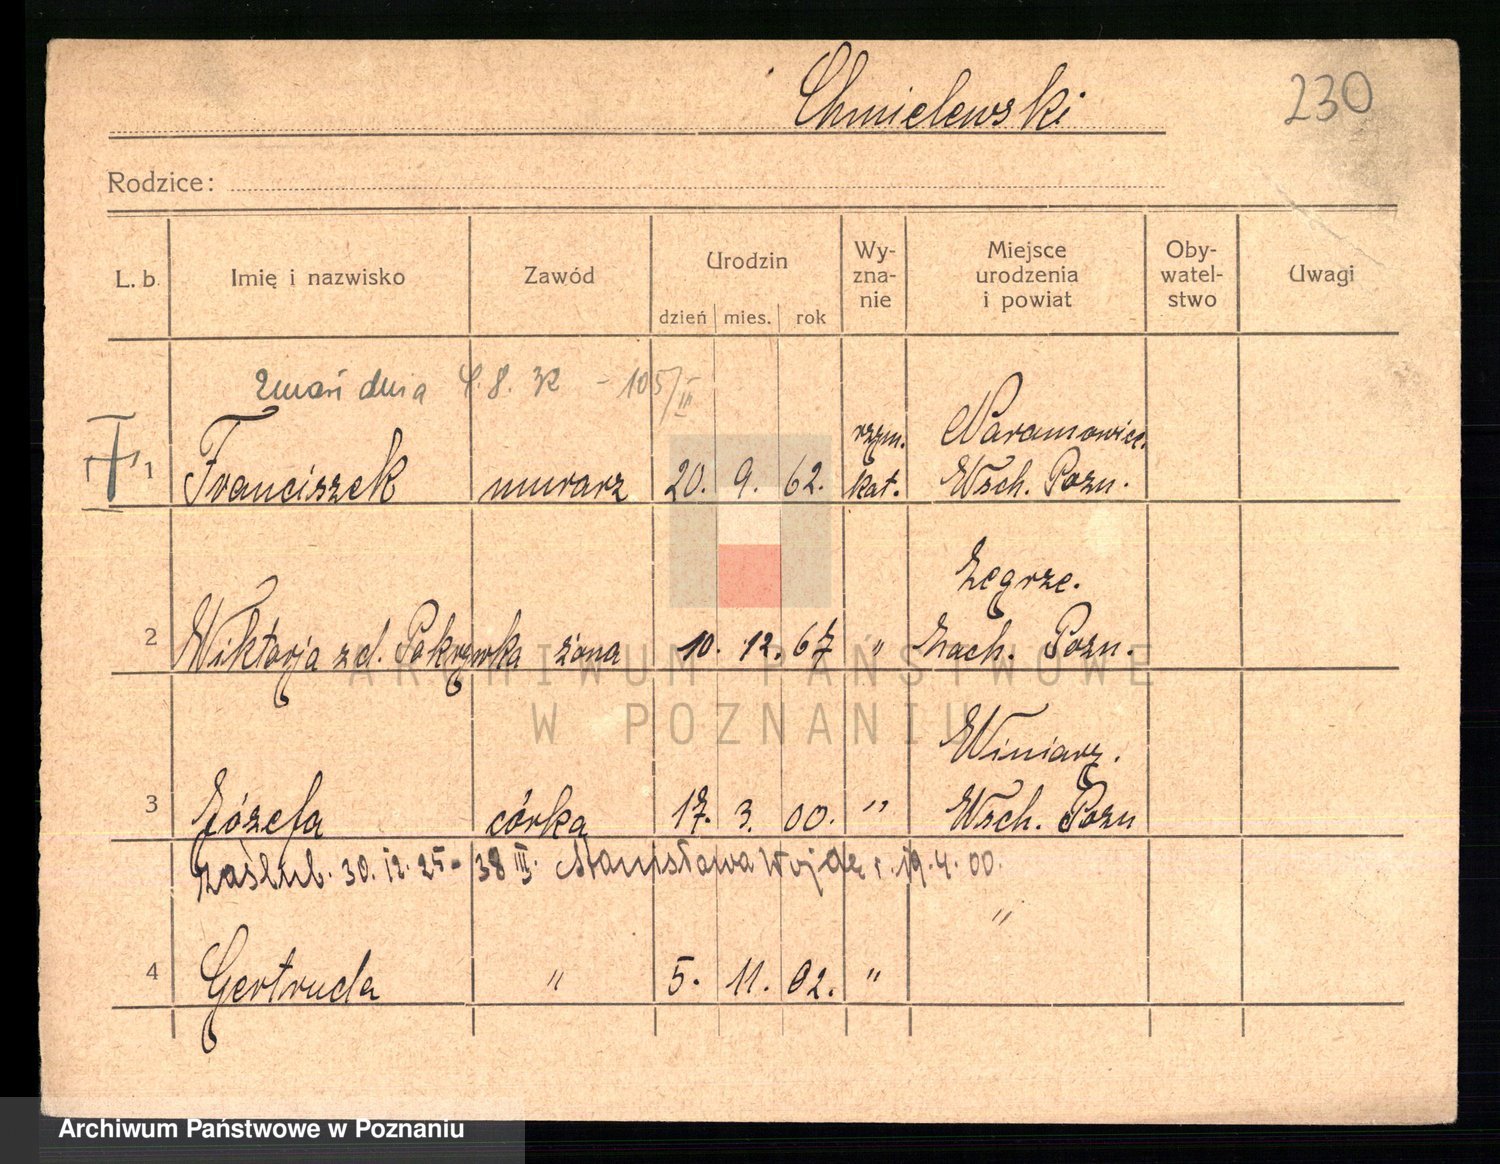 Chmielewski
230
Rodzice:
L. b. Imię i nazwisko Zawód Urodzin dzień mies. rok Wy-zna-nie Miejsce urodzenia i powiat Oby-watel-stwo Uwagi
dnia 8. 32 - 105/III
1 Franciszek murarz 20. 9. 62. rzym. kat. Wsch. Pozn.
Zegrze.
2 Wiktorja zd. Pokrzywka żona 10. 12. 67 " Zach. Pozn.
Winiary.
3 Józefa córka 17. 3. 00. " Wsch. Pozn
zaślub. 30. 12. 25 - 38 III. Stanisława 19. 4. 00.
"
4 Gertruda " 5. 11. 02. "
ARCHIWUM PAŃSTWOWE
W POZNANIU
Archiwum Państwowe w Poznaniu